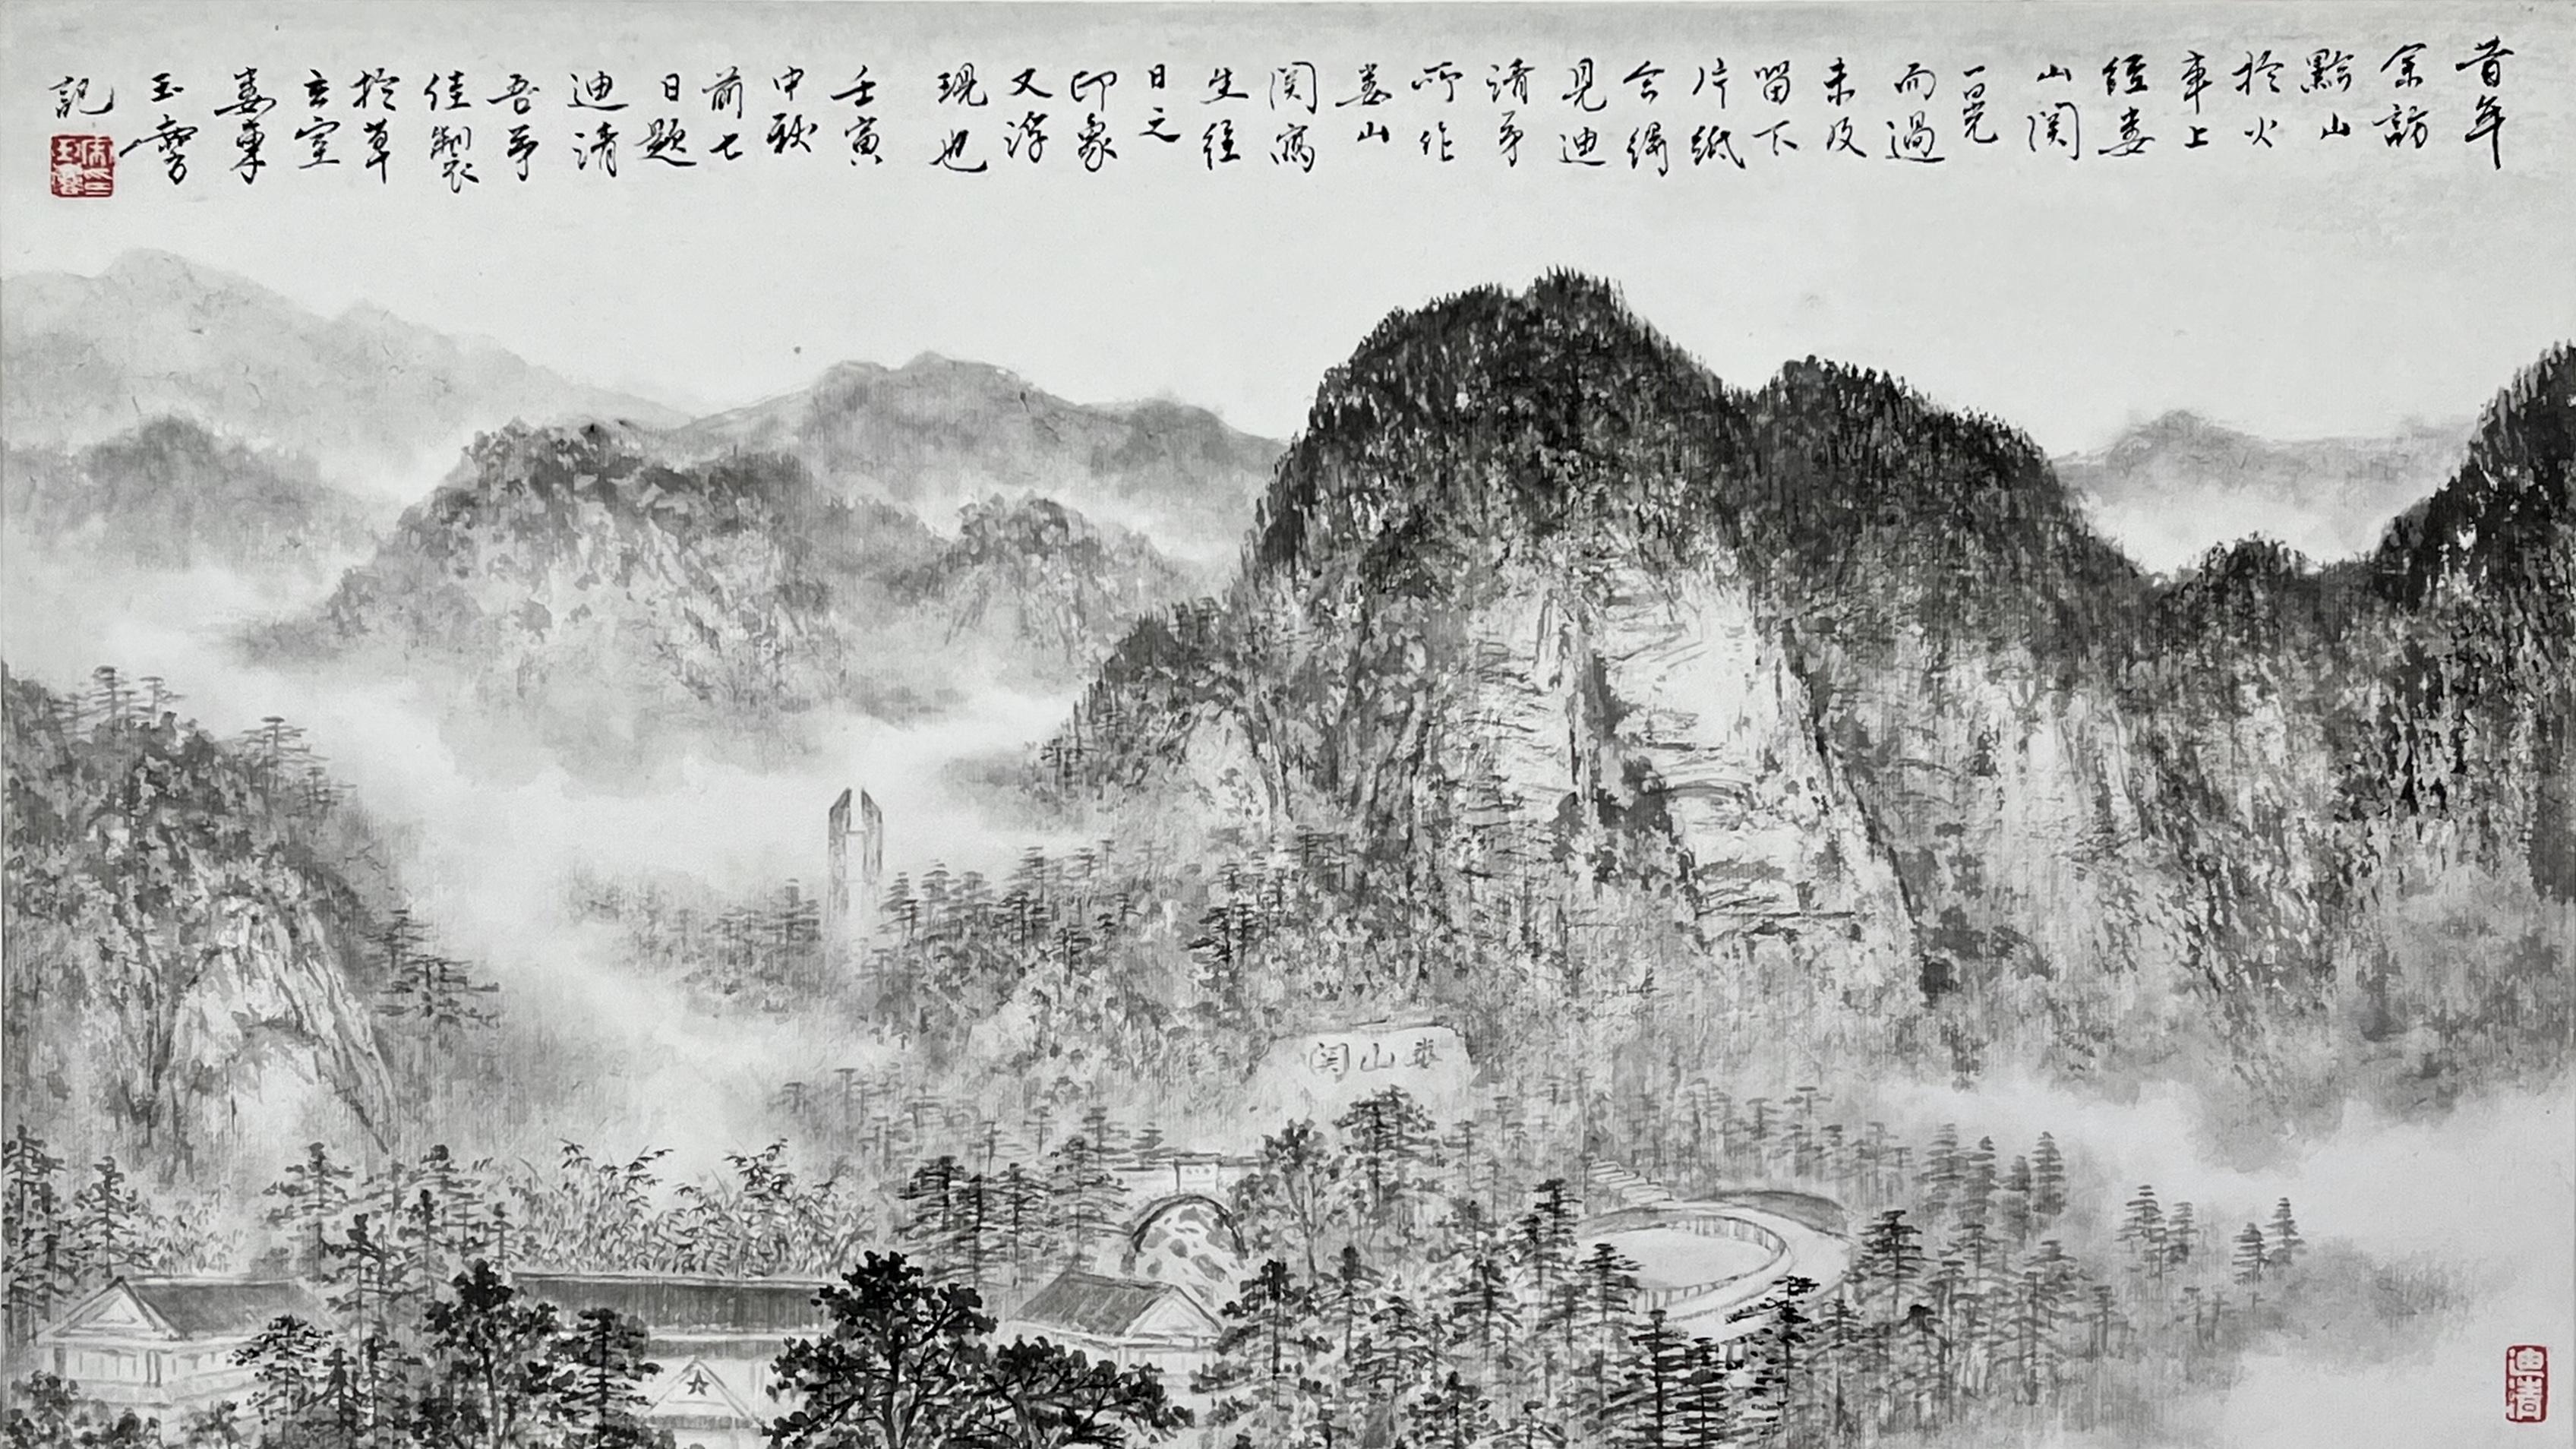 昔年
余訪
黔山
於火
車上
經娄
山関
一晃
而過
未及
留下
片紙
今得
見迪
清弟
所作
娄山
関寫
生往
日之
印象
又浮
現也
壬寅
中秋
前七
日題
迪清
吾弟
佳製
於草
玄室
娄東
玉
記
娄山関
迪清